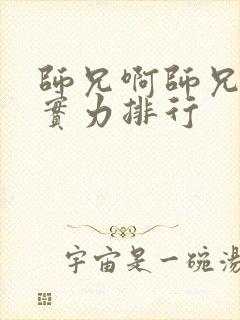 師兄啊師兄
實力排行
宇宙是一碗湯